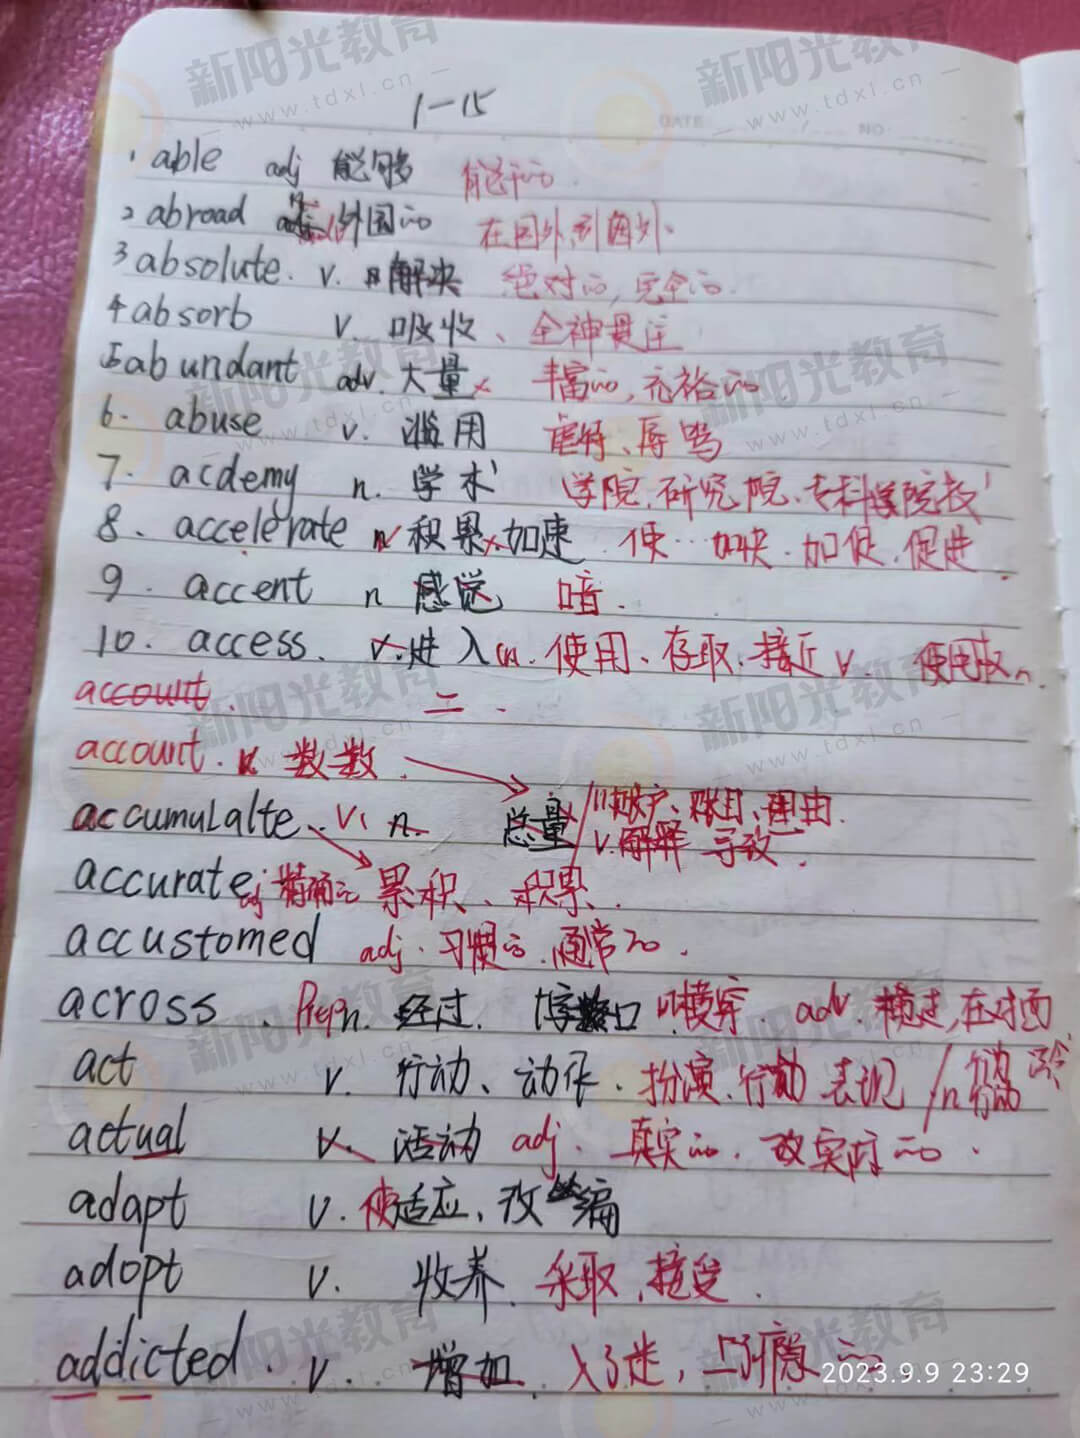 1-15
DATE NO
1 able adj 能够 能干的.
2 abroad n. adj 外国的 在国外,到国外.
3 absolute. v. 解决 绝对的,完全的.
4 absorb v. 吸收、全神贯注
5 abundant adv. 大量 丰富的,充裕的
6. abuse v. 滥用 虐待、辱骂
7. acdemy n. 学术 学院.研究院.专科学院校
8. accelerate n 积累 加速. 使…加快.加促.促进.
9. accent n 感觉 口音.
10. access. v. 进入 n. 使用、存取.接近 v. 使用权 n.
account. 二.
account. n 数数.
accumulalte. v. n. 总量 n.账户、账目、理由. v.解释 导致.
accurate adj 精确的 累积、积累.
accustomed adj. 习惯的.通常的.
across. Prep n. 经过. 十字路口 横穿. adv. 横过,在对面
act v. 行动、动作.扮演.行动 表现 / n 行为 行动
actual v. 活动 adj. 真实的.
adapt v. 使适应、改编
adopt v. 收养. 采取,接受.
addicted. v. 增加. 入了迷,上了瘾的
2023.9.9 23:29
新阳光教育
www.tdxl.cn